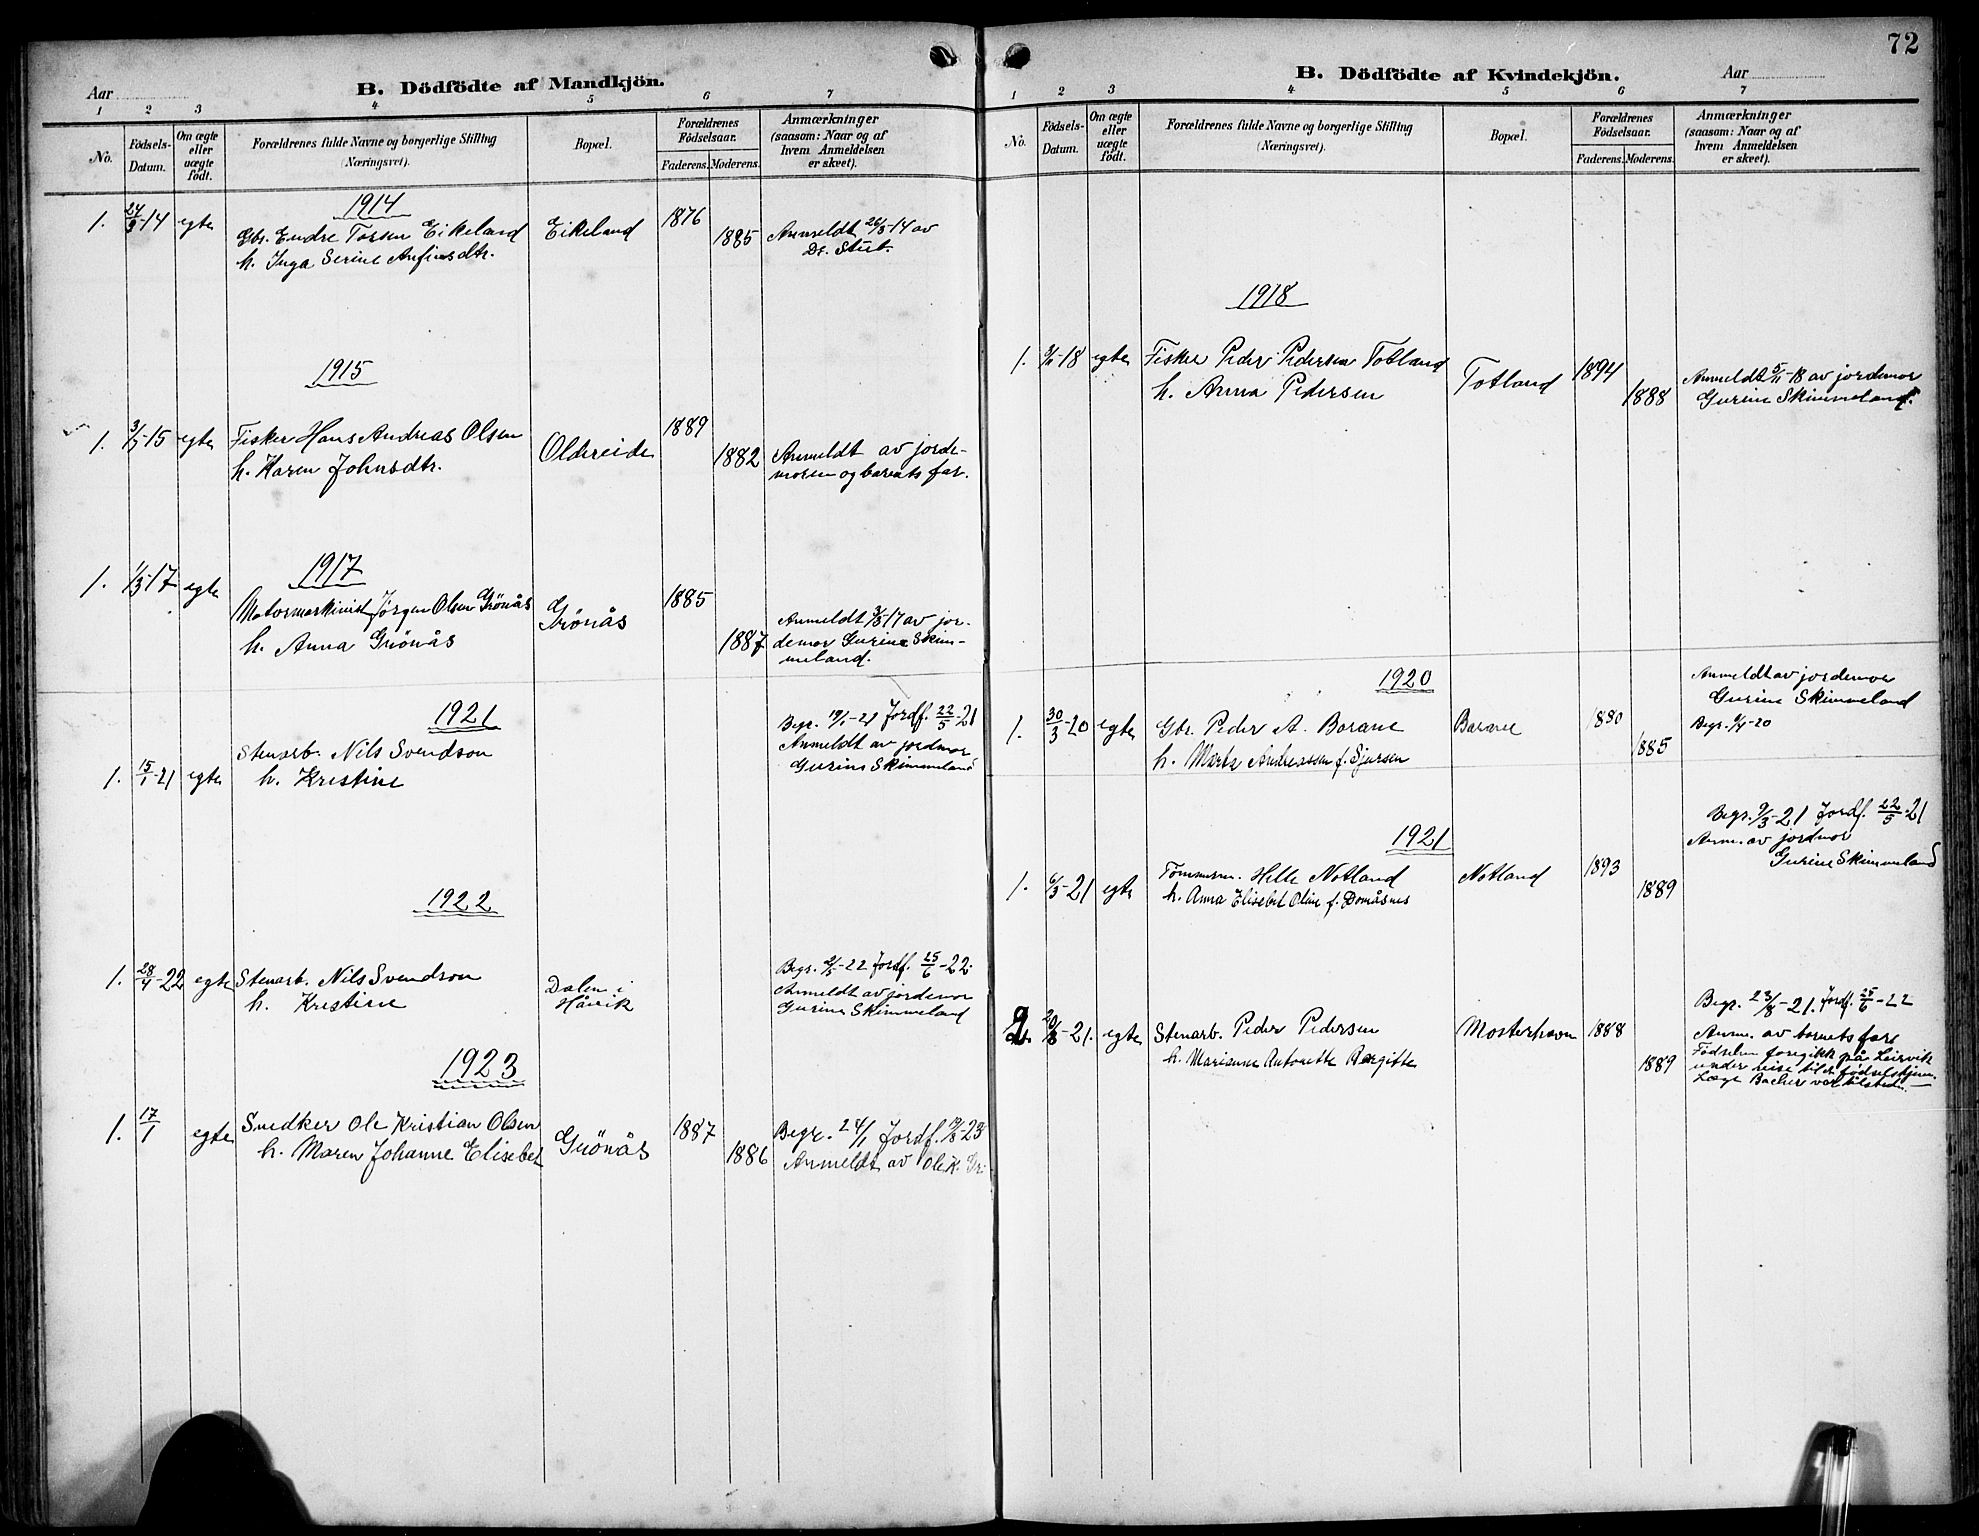 B. Dödfödte af Mandkjön.
Aar
1 2 3 4 5 6 7
No.
Födsels-
Datum.
Om ægte
eller
uægte
födt.
Forældrenes fulde Navne og borgerlige Stilling
(Næringsvei).
Bopæl.
Forældrenes
Födselsaar.
Faderens. Moderens.
Anmærkninger
(saasom: Naar og af
hvem Anmeldelsen
er skeet).
1914
1. 24/3-14 egte Gbr. Endre Torsen Eikeland Eikeland 1876
h. Inga Serine Anfinsdtr. 1885
Anmeldt 26/3-14 av
Dr. Stub.
1915
1. 3/5-15 egte Fisker Hans Andreas Olsen Oldereide 1889
h. Karen Johnsdtr. 1882
Anmeldt av jorde-
moren og barnets far.
1917
1. 1/3-17 egte Motormaskinist Jørgen Olsen Grönås Grönås 1885
h. Anna Grönås 1887
Anmeldt 3/3-17 av jor-
demor Gurine Skim-
meland.
1921
1. 15/1-21 egte Stenarb. Nils Svendson
h. Kristine
Begr. 19/1-21 Jordf. 22/5-21
Anmeldt av jordmor
Gurine Skimmeland
1922
1. 28/4-22 egte Stenarb. Nils Svendson
h. Kristine
Dalen i
Håvik
Begr. 2/5-22 Jordf. 25/6-22.
Anmeldt av jordemor
Gurine Skimmeland
1923
1. 17/1 egte Snedker Ole Kristian Olsen Grönås 1887
h. Maren Johanne Elisebet 1886
Begr. 24/1 Jordf. 19/8-23
Anmeldt av Ole K. Gr.
72
B. Dödfödte af Kvindekjön.
Aar
1 2 3 4 5 6 7
No.
Födsels-
Datum.
Om ægte
eller
uægte
födt.
Forældrenes fulde Navne og borgerlige Stilling
(Næringsvei).
Bopæl.
Forældrenes
Födselsaar.
Faderens. Moderens.
Anmærkninger
(saasom: Naar og af
hvem Anmeldelsen
er skeet).
1918
1. -18 egte Fisker Peder Pedersen Totland Totland 1894
h. Anna Pedersen 1888
Anmeldt 5/11-18 av jordemor
Gurine Skimmeland.
1920
1. 30/3-20 egte Gbr. Peder A. Borane Borane 1880
h. Marta Andreassen f. Sjursen 1885
Anmeldt av jordemor
Gurine Skimmeland
Begr. 9/4-20
1921
1. 6/3-21 egte Tømmerm. Helle Notland Notland 1893
h. Anna Elisebet Oline f. Domåsnes 1889
Begr. 9/3-21 Jordf. 22/5-21
Anm. av jordmor
Gurine Skimmeland
2. 20/8-21. egte Stenarb. Peder Pedersen Mosterhavn 1888
h. Marianne Antonette Bergitte 1889
Begr. 23/8-21. Jordf. 25/6-22
Anm. av barnets far
Fødselen foregikk på Leirvik
under reise til et fødselshjem.
Læge Bacher var tilstede.